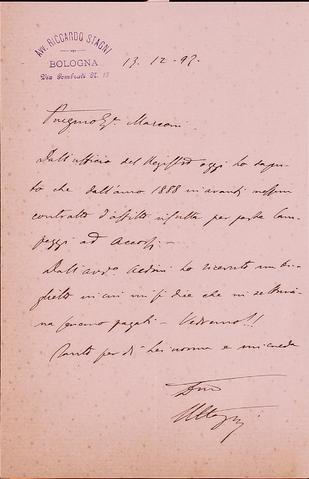 AVV. RICCARDO STAGNI
BOLOGNA
Via Gombruti N. 13
13. 12 - 97.
Pregmo Sr. Marconi
Dall'ufficio del Registro oggi ho sapu-
to che dall'anno 1888 in avanti nessun
contratto d'affitto risulta per parte Cam-
peggi ad Accorsi -
Dall'avvo ho ricevuto un bi-
glietto in cui mi si dice che in settima-
na saranno pagati - Vedremo!!
Tanto per di Lei norma e mi creda
Suo